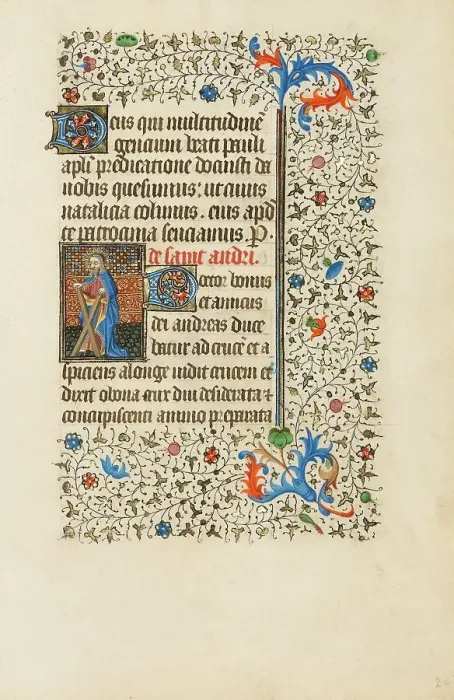 Deus qui multitudinē
gencium beati pauli
apl̄i predicatione docuisti da
nobis quesumus; ut cuius
natalicia colimus. eius apd̄
te patrocinia senciamus P.
de saint andri.
Doctor bonus
et amicus
dei andreas duce
batur ad crucē et a
spiciens alonge vidit crucem et
dixit o bona crux diu desiderata ⁊
concupiscenti animo preparata